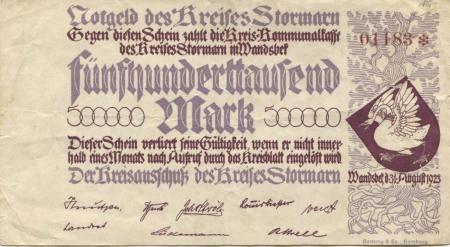 Notgeld des Kreises Stormarn
Gegen diesen Schein zahlt die Kreis-Kommunalkasse
des Kreises Stormarn in Wandsbek
01183 *
fünfhunderttausend
500000 Mark 500000
Dieser Schein verliert seine Gültigkeit, wenn er nicht inner-
halb eines Monats nach Aufruf durch das Kreisblatt eingelöst wird
Der Kreisausschuß des Kreises Stormarn
Wandsbek d. 31. August 1923
Landrat
Hartung & Co., Hamburg